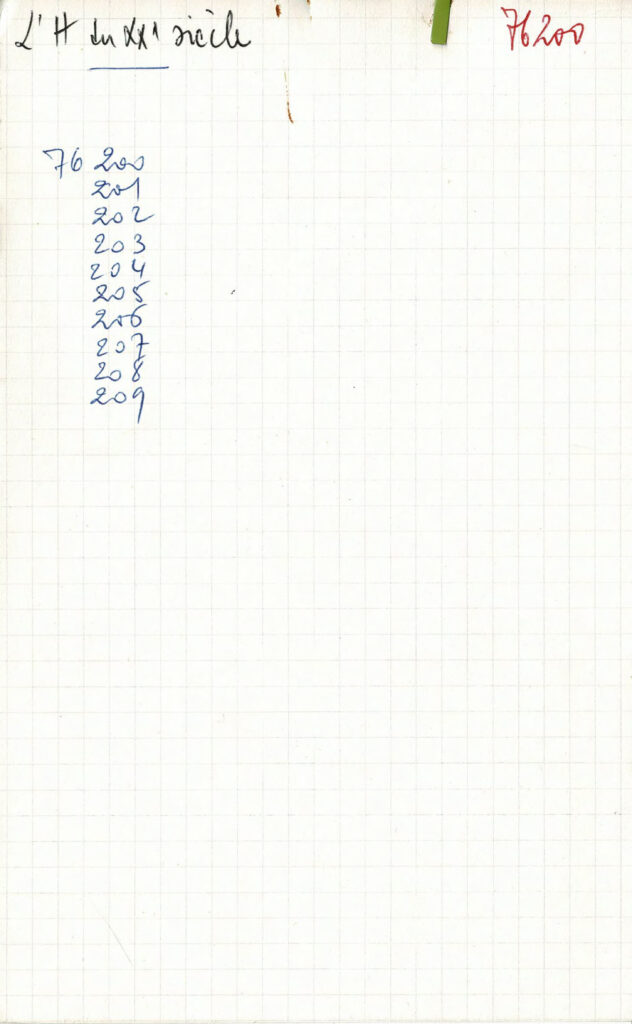 L'H du XXe siècle
76200
76 200
201
202
203
204
205
206
207
208
209